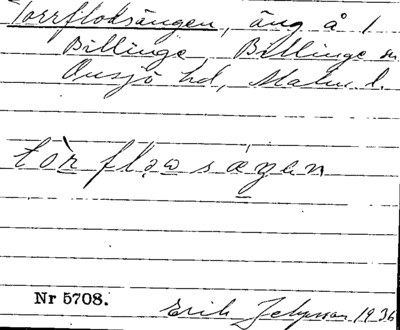 Torrflodsängen, äng å 1
Billinge Billinge sn
Onsjö hd, Malm. l.
tòr flo̜wságen
Nr 5708.
Erik 1936